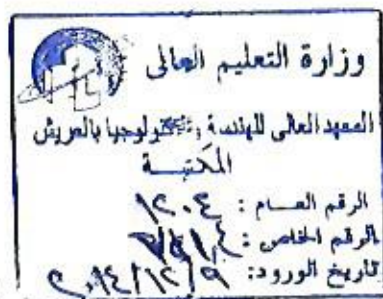 وزارة التعليم العالى
المعهد العالى للهندسة والتكنولوجيا بالعريش
المكتبة
الرقم العام : ١٢٠٤
الرقم الخاص :
تاريخ الورود: ٢٠١٤/١٢/٩